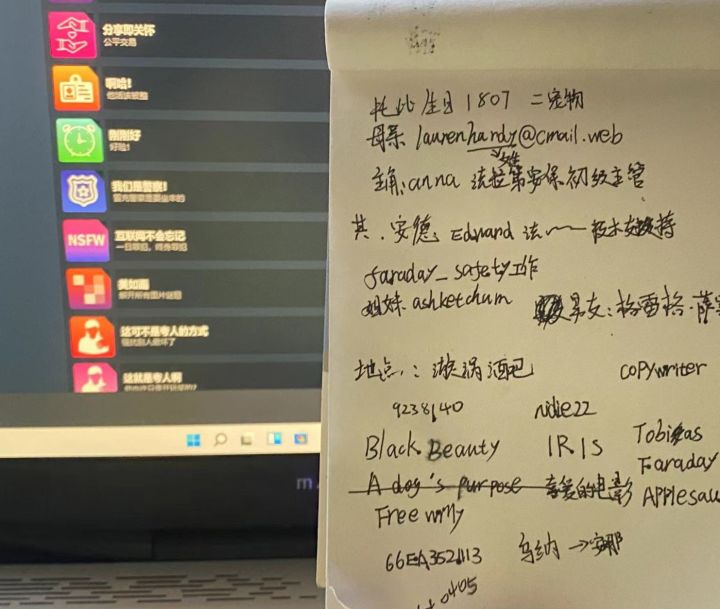 分享即关怀
公平交易
啊哈!
刚刚好
好险!
我们是警察!
NSFW
互联网不会忘记
一日罪犯，终身罪犯
美如画
解开所有图片谜题
这可不是夸人的方式
这就是夸人啊
托比 生日 1807 二 宠物
母亲 laurenhardy@cmail.web
主角: anna 法拉第安保初级主管
其. 安德: Edward 法 技术支持
faraday_safety 工作
姐妹. ashketchum 男女: 格雷格·萨
地点: 漩涡酒吧 copywriter
9238140 ndie22
Black Beauty IRIS Tobias
Faraday
A dog's purpose 喜爱的电影 Applesau
Free willy
66EA352113 乌纳 → 安那
0405